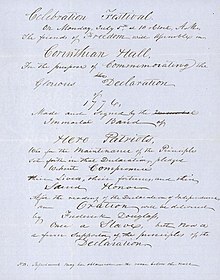 Celebration Festival.
On Monday July 5th at 10 Clock, A.M.
The friends of Freedom will assemble in
Corinthian Hall,
For the purpose of Commemorating the
Glorious Declaration
of
1776,
Made and Signed by the
Immortal Band of
Hero Patriots,
Who for the Maintenance of the Principle
set forth in that Declaration, pledged
without Compromise
their Lives, their fortunes, and their
Sacred Honor
After the reading of the Declaration of Independence
an Oration will be delivered
by Frederick Douglass,
Once a Slave, but now a
firm supporter of the principles of the
Declaration.
NB. Refreshment may be